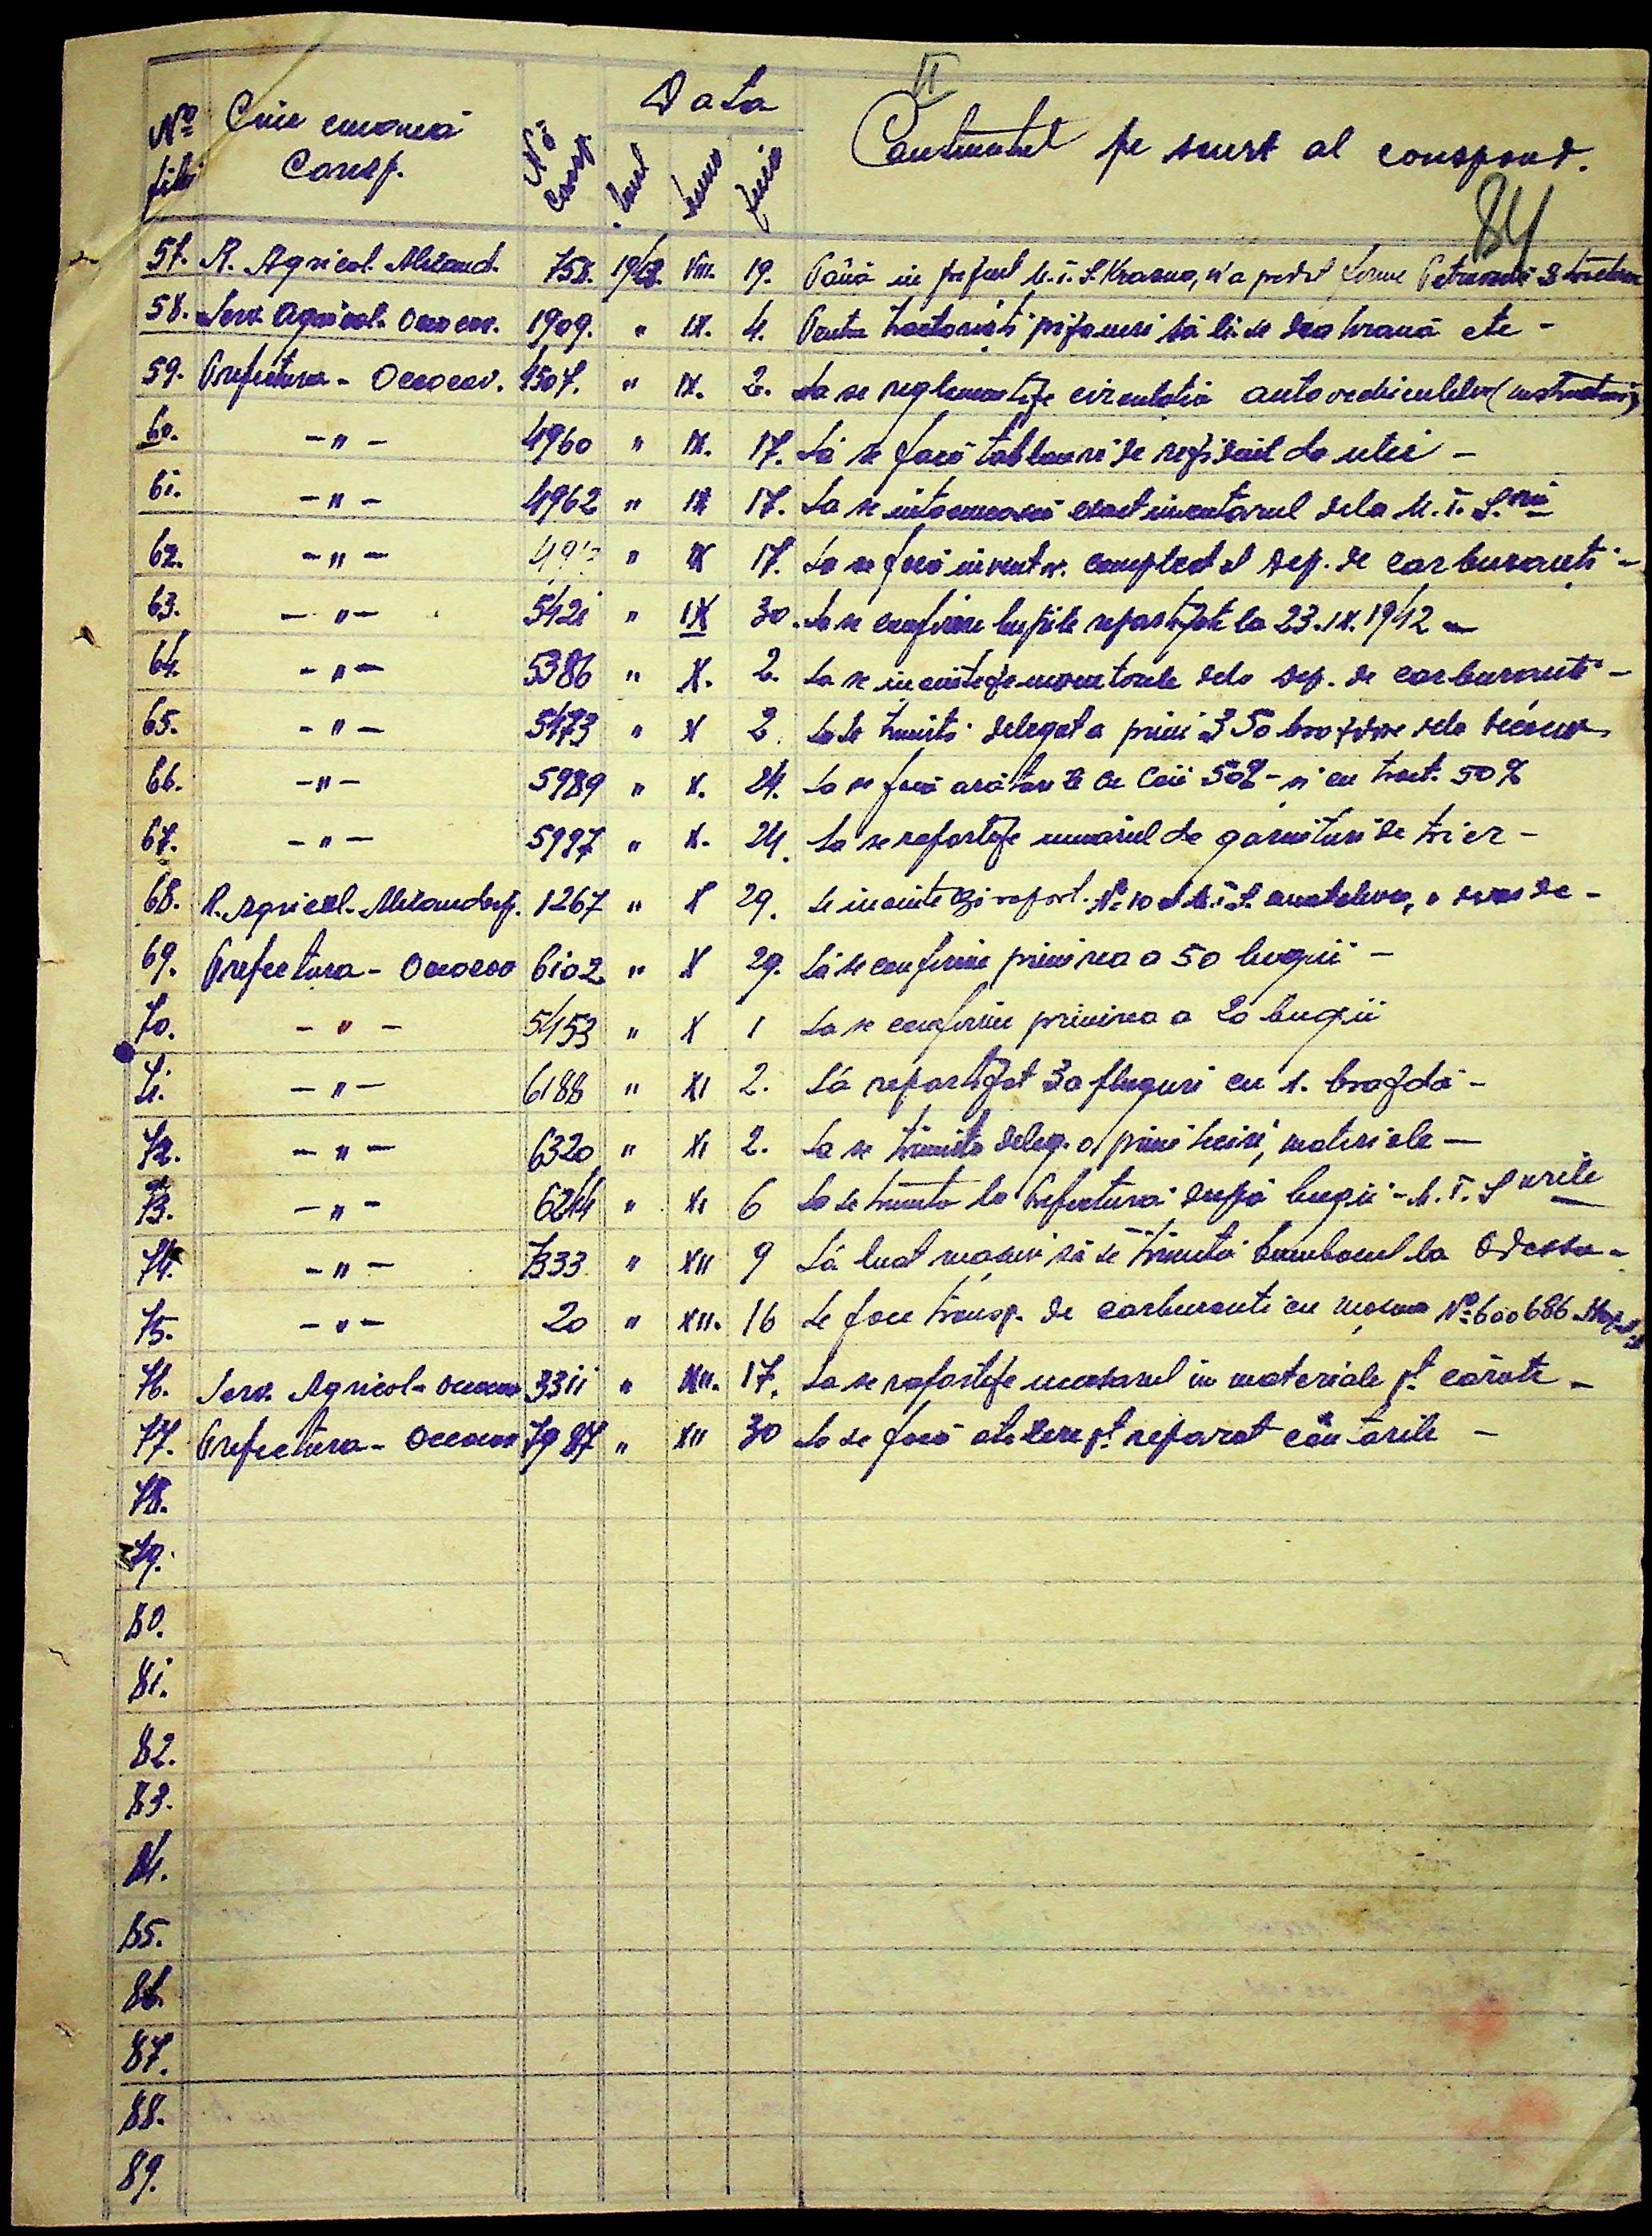 II
Nº filei | Cine emană Coresp. | Nº Coresp. | Data | Conținutul pe scurt al corespond.
Anul | Luna | Ziua
84
57. R. Agricol. Alexand. 758. 1942. VIII. 19. Până în prezent M.T.S. Krasna, n'a predat fermei 3 tractoare
58. Serv. Agricol. Oceacov. 1909. " IX. 4. Pentru tractoriști prizonieri să li se dea hrană etc -
59. Prefectura - Oceacov. 4507. " IX. 2. Sa se reglementeze circulatia autovechiculelor (instructiuni)
60. - " - 4960 " IX. 17. Să se facă tablouri de de ulei -
61. - " - 4962 " IX 17. Sa se intocmească exact inventarul dela M.T.S. uri
62. - " - " IX 17. Sa se facă inventar. complect al dep. de carburanți -
63. - " - 5421 " IX 30. Sa se confirme bujiile repartizate la 23.IX.1942 -
64. - " - 5386 " X. 2. Sa se inainteze inventarele dela dep. de carburanti -
65. - " - 5473 " X 2. Sa se trimită delegat a primi 350 dela
66. - " - 5989 " X. 24. Sa se facă arături cu Caii 50% - si cu tract. 50%
67. - " - 5997 " X. 24. Sa se raporteze numărul de garnituri de trier -
68. R. Agricol. Alexandrof. 1267 " X 29. Se inaintează raport. Nº 10 al M.T.S.
69. Prefectura - Oceacov 6102 " X 29. Să se confirme primirea a 50 bugii -
70. - " - 5453 " X 1 Sa se confirme primirea a 20 bugii
71. - " - 6188 " XI 2. S'a repartizat 30 pluguri cu 1. brazdă -
72. - " - 6320 " XI 2. Sa se trimită deleg. a primi materiale -
73. - " - 6244 " XI 6 Sa se trimita la Prefectură după bugii - M.T.S urile
74. - " - 7333 " XII 9 S'a luat masuri să se trimită bumbacul la Odessa -
75. - " - 20 " XII. 16 Se face transp. de carburanti cu Nº 600686
76. Serv. Agricol - Oceacov 3311 " XII. 17. Sa se raporteze necesarul in materiale pt. căruțe -
77. Prefectura - Oceacov 7987 " XII 30 Sa se facă ateliere pt. reparat cântarile -
78.
79.
80.
81.
82.
83.
84.
85.
86.
87.
88.
89.